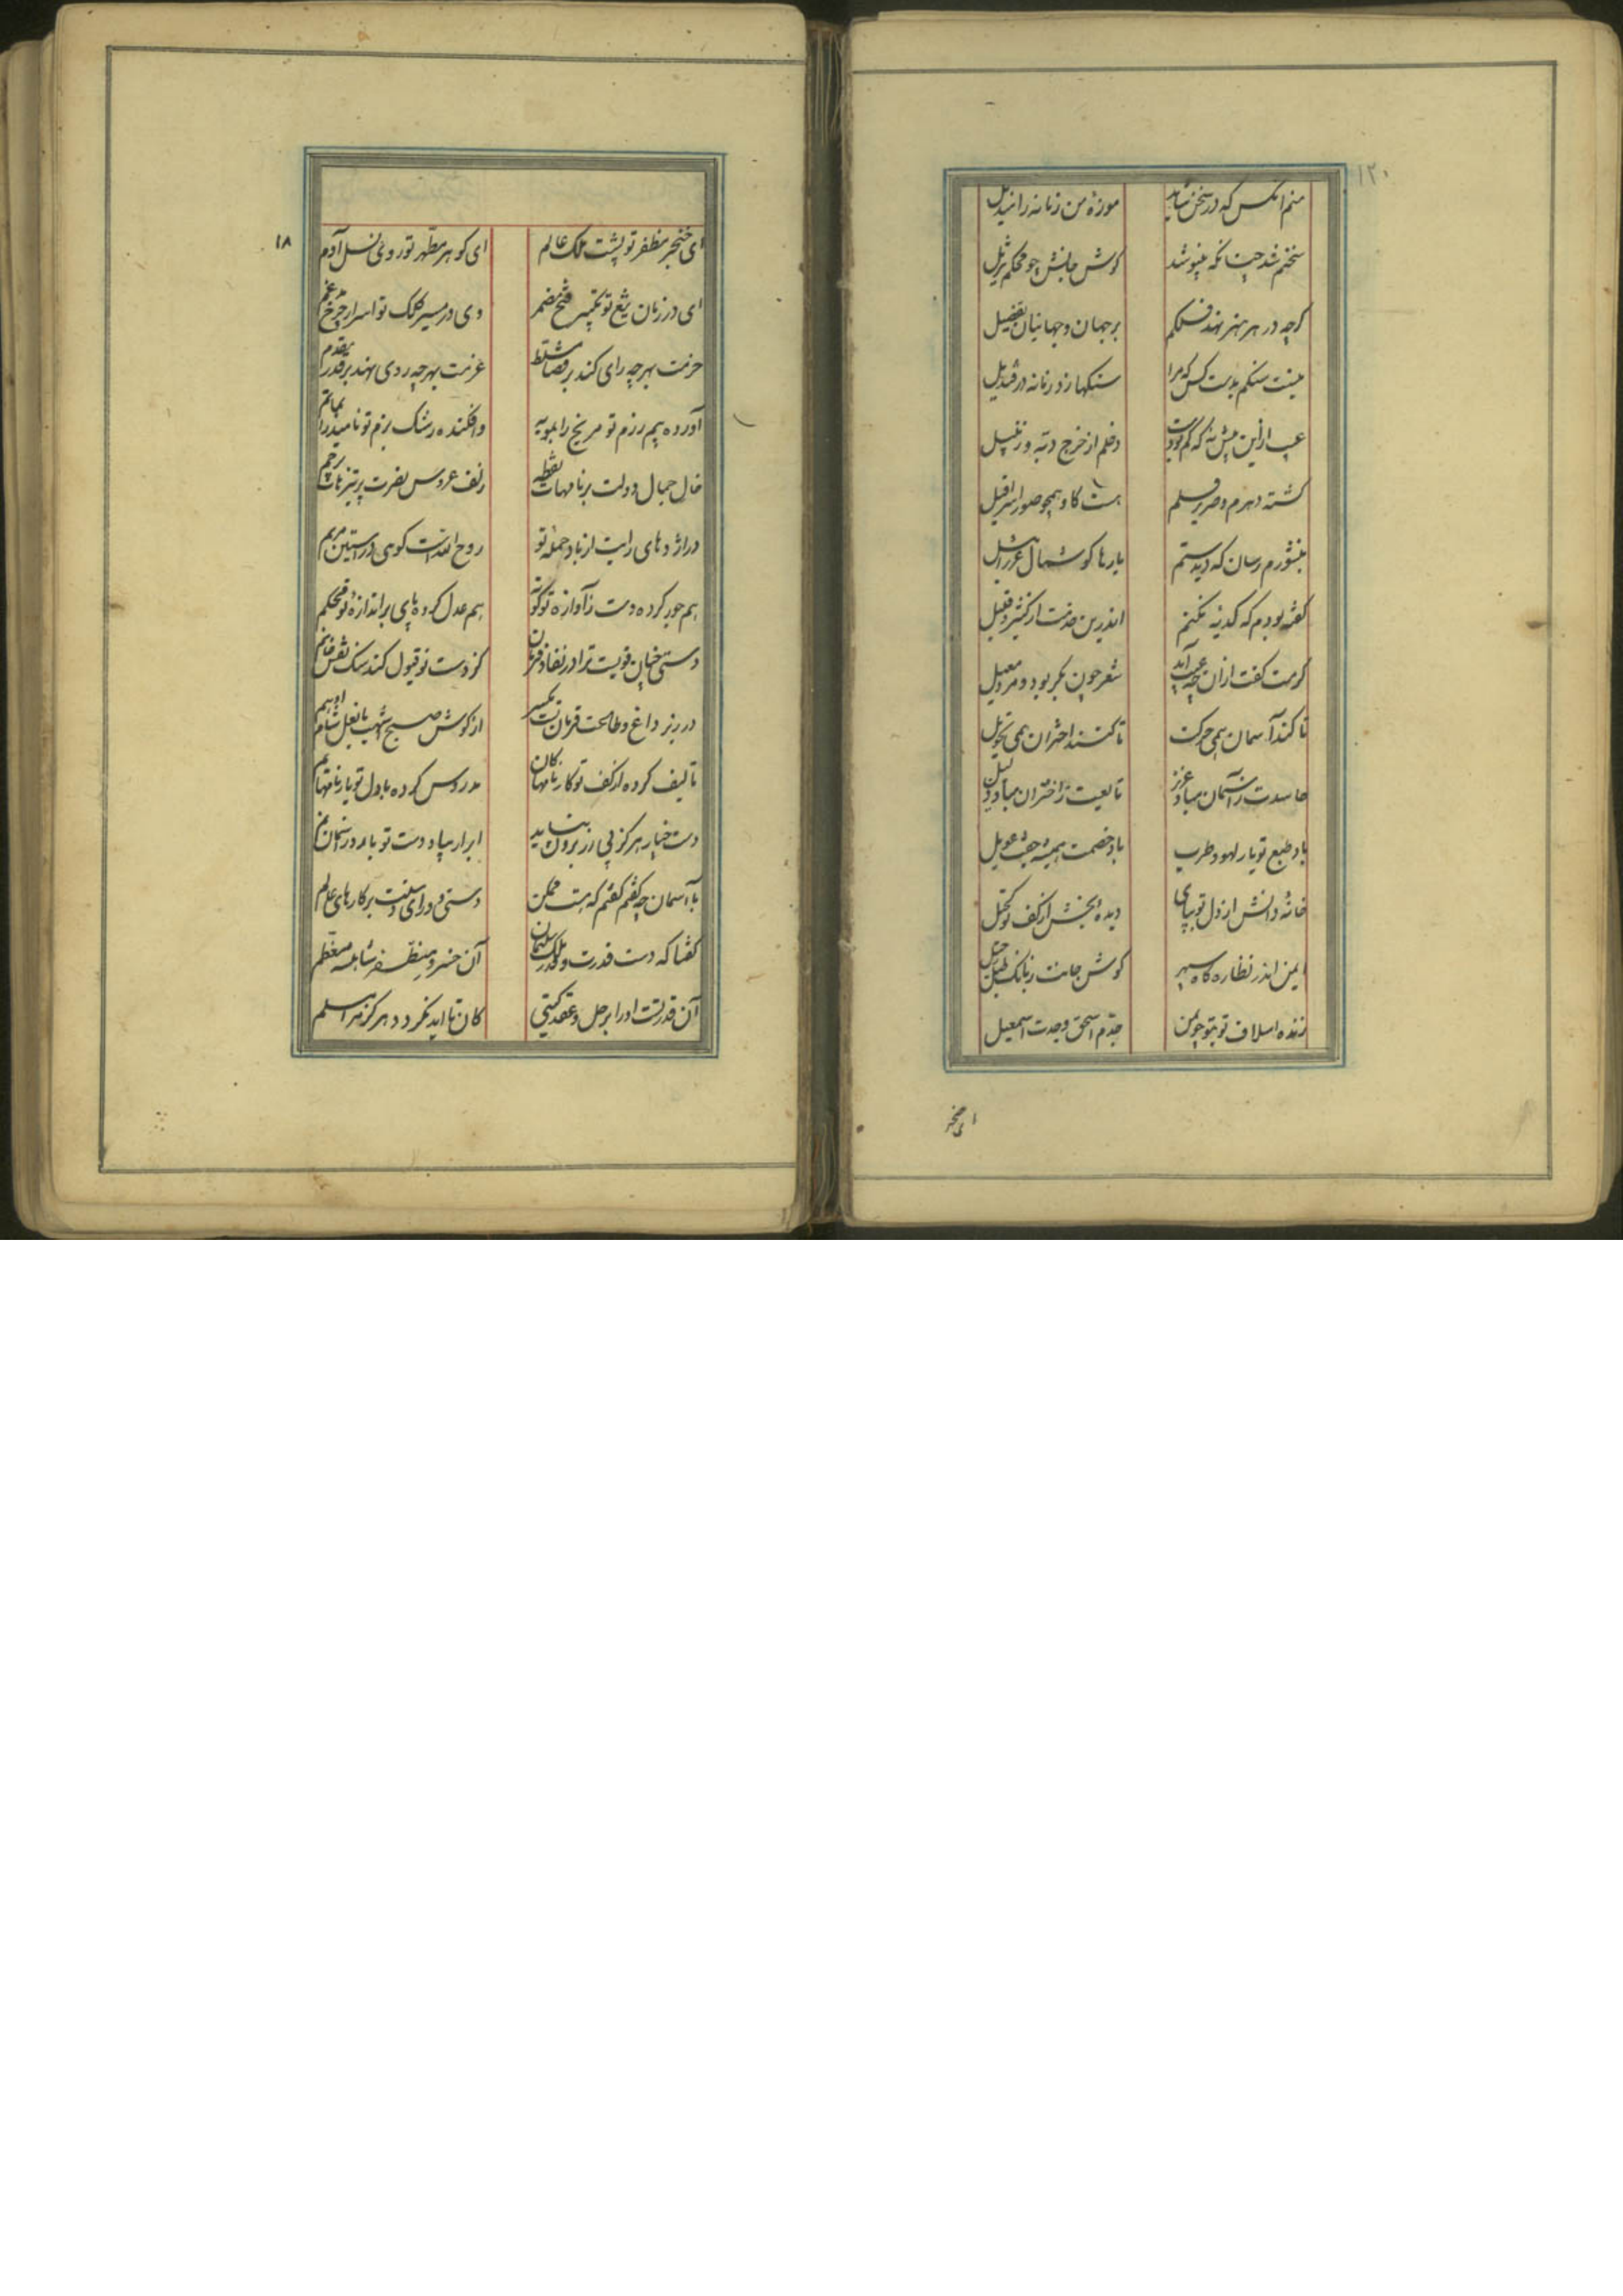 ۱۲۰
منم آنکس که در سخن شاید موزه من زمانه را تبدیل
سخنم شد چنانکه بنیوشد گوش جانش چو محکم تنزیل
گرچه در هر هنر نهد فلکم بر جهان و جهانیان تفضیل
نیست سنگم بدست کس که مرا سنگها زد زمانه در قندیل
عیب ازین بیش نه که کم بودست دخلم از خرج دبه و زنبیل
کشته دهرم و صریر قلم هست گاو همچو صور اسرافیل
بنشورم رسان که دیدستم بارها گوشمال عزرائیل
گفته بودم که کدیه نکنم اندرین خدمت از کثیر و قلیل
کرمت گفت ازان چه عیب آید شعر چون بکر بود و مرد معیل
تا کند آسمان همی حرکت تا کنند اختران همی تحویل
حاسدت ز آسمان مباد عزیز تابعت ز اختران مباد ذلیل
باد طبع تو یار لهو و طرب باد خصمت همیشه جفت عویل
خانه دانش از دل تو بپای دیده بخشش از کف تو کحیل
ایمن اندر نظاره گاه سپهر گوش جانت ز بانگ طبل رحیل
زنده اسلاف تو بتو چو بمن جدم اسحق و جدت اسمعیل
ای خنجر
۱۸
ای خنجر مظفر تو پشت ملک عالم ای گوهر مطهر تو روی نسل آدم
ای در زبان تیغ تو تفسیر فتح مضمر وی در مسیر کلک تو اسرار چرخ مدغم
حزمت بهرچه رای کند بر قضا مسلط عزمت بهرچه روی نهد بر قدر مقدم
آورده بیم رزم تو مریخ را بمویه وافکنده رشک بزم تو ناهید را بماتم
خال جمال دولت بر نامهات نقطه زلف عروس نصرت بر نیزهات پرچم
در اژدهای رایت از باد حمله تو روح الله است گوئی در آستین مریم
هم جور کرده دست ز آوازه تو کوته هم عدل کرده پای بر اندازه تو محکم
دستی چنان قویست ترا در نفاذ فرمان کز دست تو قبول کند سنگ نقش خاتم
در زیر داغ و طاعت فرمان تست یکسر از گوش صبح اشهب تا نعل شام ادهم
تالیف کرده از کف تو کارنامهای کان مدروس کرده با دل تو بارنامهای یم
دست چنار هرگز بی زر برون نیاید ابر ار بیاد دست تو بارد در آسمان نم
با آسمان چه گفتم گفتم که هست ممکن دستی ورای دستت بر کارهای عالم
گفتا که دست قدرت و قدر ملک سلیمان آن خسرو مظفر شاهنشه معظم
آن قدرتست او را بر حل و عقد گیتی کان تا ابد نگردد هرگز مرا مسلم